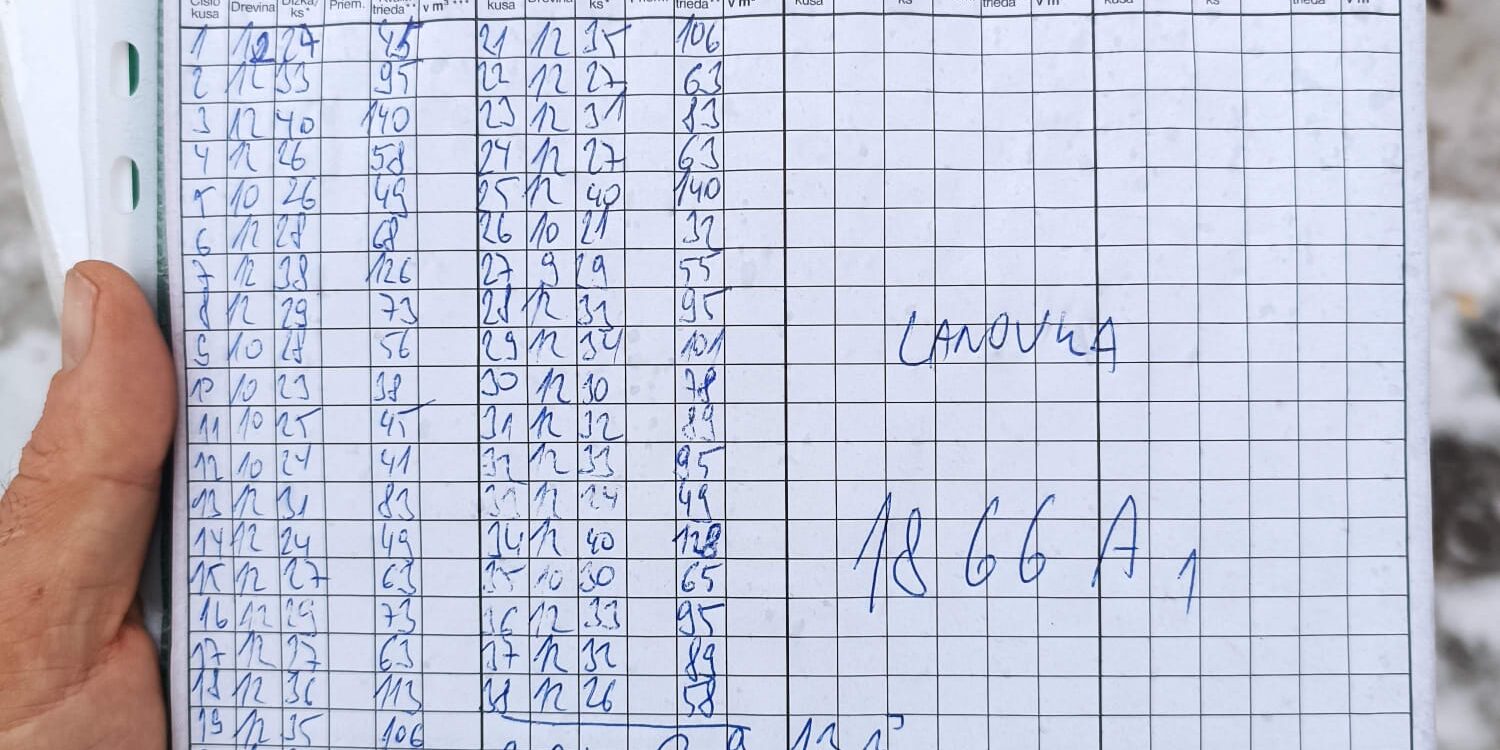 Číslo kusa Drevina Dĺžka/ ks* Priem. trieda** v m³*** kusa ks* trieda v m³ kusa ks trieda v m kusa ks trieda v m
1 12 27 45 21 12 35 106
2 12 33 95 22 12 27 63
3 12 40 140 23 12 31 83
4 12 26 58 24 12 27 63
5 10 26 49 25 12 40 140
6 12 28 68 26 10 21 32
7 12 38 126 27 9 29 55
8 12 29 73 28 12 33 95
9 10 28 56 29 12 34 101
10 10 23 38 30 12 30 78
11 10 25 45 31 12 32 89
12 10 24 41 32 12 33 95
13 12 31 83 33 12 24 49
14 12 24 49 34 12 40
15 12 27 63 35 10 30 65
16 12 29 73 36 12 33 95
17 12 27 63 37 12 32 89
18 12 36 113 38 12 26 58
19 12 35 106
LANOVKA
1866 A 1